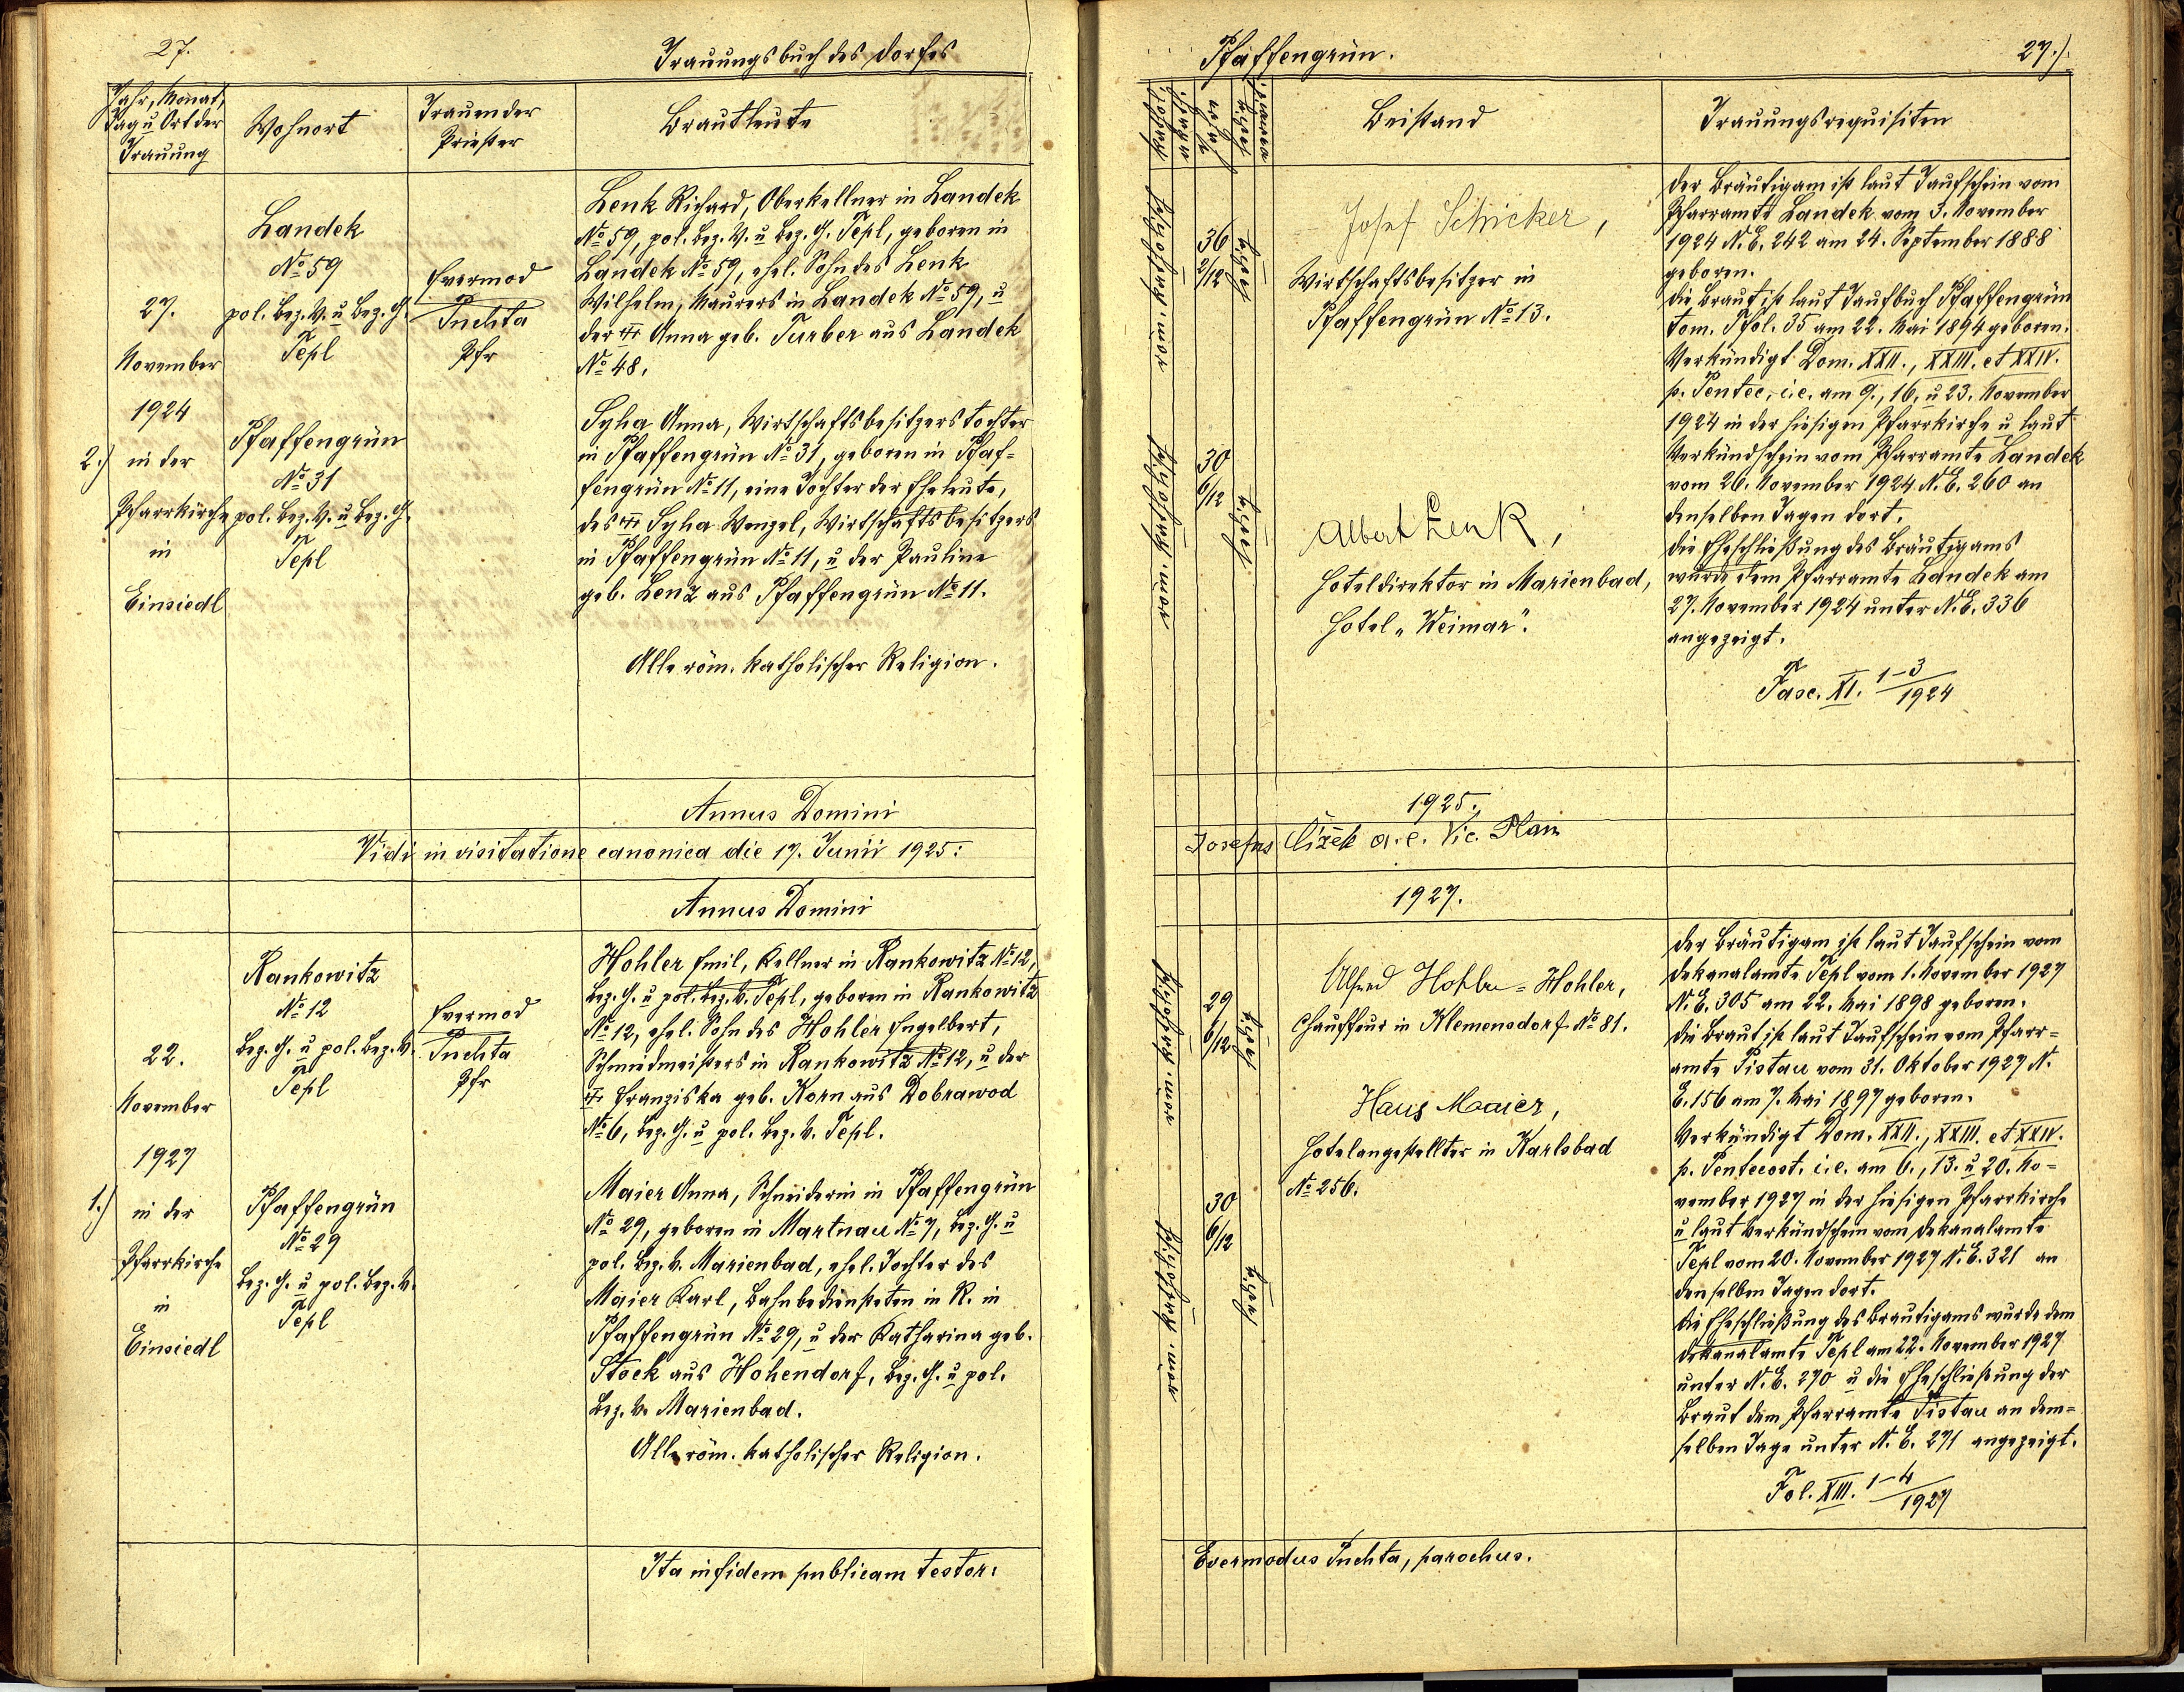 27.
Trauungsbuch des Dorfes
Jahr, Monat,
Tag u Ort der
Trauung
Wohnort
Trauender
Priester
Brautleute
2.)
27.
November
1924
in der
Pfarrkirche
in
Einsiedl
Landek
No 59
pol. Bez. V. u Bez. G.
Tepl
Pfaffengrün
No 31
pol. Bez. V. u Bez. G.
Tepl
Evermod
Puchta
Pfr
Lenk Richard, Oberkellner in Landek
No 59, pol. Bez. V. u Bez. G. Tepl, geboren in
Landek No 59, ehel. Sohn des Lenk
Wilhelm, Maurers in Landek No 59, u
der Anna geb. Turber aus Landek
No 48.
Syha Anna, Wirtschaftsbesitzerstochter
in Pfaffengrün No 31, geboren in Pfaf=
fengrün No 11, eine Tochter der Eheleute,
des Syha Wenzel, Wirtschaftsbesitzers
in Pfaffengrün No 11, u der Pauline
geb. Lenz aus Pfaffengrün No 11.
Alle röm. katholischer Religion.
Annus Domini
Vidi in visitatione canonica die 17. Junii 1925:
Annus Domini
1.)
22.
November
1927
in der
Pfarrkirche
in
Einsiedl
Rankowitz
No 12
Bez. G. u pol. Bez. V.
Tepl
Pfaffengrün
No 29
Bez. G. u pol. Bez. V.
Tepl
Evermod
Puchta
Pfr
Hohler Emil, Kellner in Rankowitz No 12,
Bez. G. u pol. Bez. V. Tepl, geboren in Rankowitz
No 12, ehel. Sohn des Hohler Engelbert,
Schmiedmeisters in Rankowitz No 12, u der
Franziska geb. Korn aus Dobrawod
No 6, Bez. G. u pol. Bez. V. Tepl.
Maier Anna, Schneiderin in Pfaffengrün
No 29, geboren in Martnau No 7, Bez. G. u
pol. Bez. V. Marienbad, ehel. Tochter des
Maier Karl, Bahnbediensteten in R. in
Pfaffengrün No 29, u der Katharina geb.
Stock aus Hohendorf, Bez. G. u pol.
Bez. V. Marienbad.
Alle röm. katholischer Religion.
Ita in fidem publicam testor:
Pfaffengrün.
27.)
Beistand
Trauungsrequisiten
katholisch
36
2/12
ledig
katholisch
30
6/12
ledig
Josef Schicker,
Wirtschaftsbesitzer in
Pfaffengrün No 13.
Albert Lenk,
Hoteldirektor in Marienbad,
Hotel „Weimar".
Der Bräutigam ist laut Taufschein vom
Pfarramte Landek vom 3. November
1924 N. E. 242 am 24. September 1888
geboren.
Die Braut ist laut Taufbuch Pfaffengrün
tom. I fol. 35 am 22. Mai 1894 geboren.
Verkündigt Dom. XXII., XXIII. et XXIV.
p. Pentec, i.e. am 9., 16. u 23. November
1924 in der hiesigen Pfarrkirche u laut
Verkündschein vom Pfarramte Landek
vom 26. November 1924 N. E. 260 an
denselben Tagen dort.
Die Eheschließung des Bräutigams
wurde dem Pfarramte Landek am
27. November 1924 unter N. E. 336
angezeigt.
Fasc. XI. 1-3/1924
1925.
Josefus Čížek a. e. Vic. Plan
1927.
29
6/12
ledig
30
6/12
ledig
Alfred Hohler = Hohler,
Chauffeur in Klemensdorf No 81.
Hans Maaier,
Hotelangestellter in Karlsbad
No 256.
Der Bräutigam ist laut Taufschein vom
Dekanalamte Tepl vom 1. November 1927
N. E. 305 am 22. Mai 1898 geboren.
Die Braut ist laut Taufschein vom Pfarr=
amte Pistau vom 31. Oktober 1927 N.
E. 156 am 7. Mai 1897 geboren.
Verkündigt Dom. XXII., XXIII. et XXIV.
p. Pentecost. i.e. am 6., 13. u 20. No=
vember 1927 in der hiesigen Pfarrkirche
u laut Verkündschein vom Dekanalamte
Tepl vom 20. November 1927 N. E. 321 an
denselben Tagen dort.
Die Eheschließung des Bräutigams wurde dem
Dekanalamte Tepl am 22. November 1927
unter N. E. 270 u die Eheschließung der
Braut dem Pfarramte Pistau an dem=
selben Tage unter N. E. 271 angezeigt.
Fol. XIII. 1-4/1927
Evermodus Puchta, parochus.